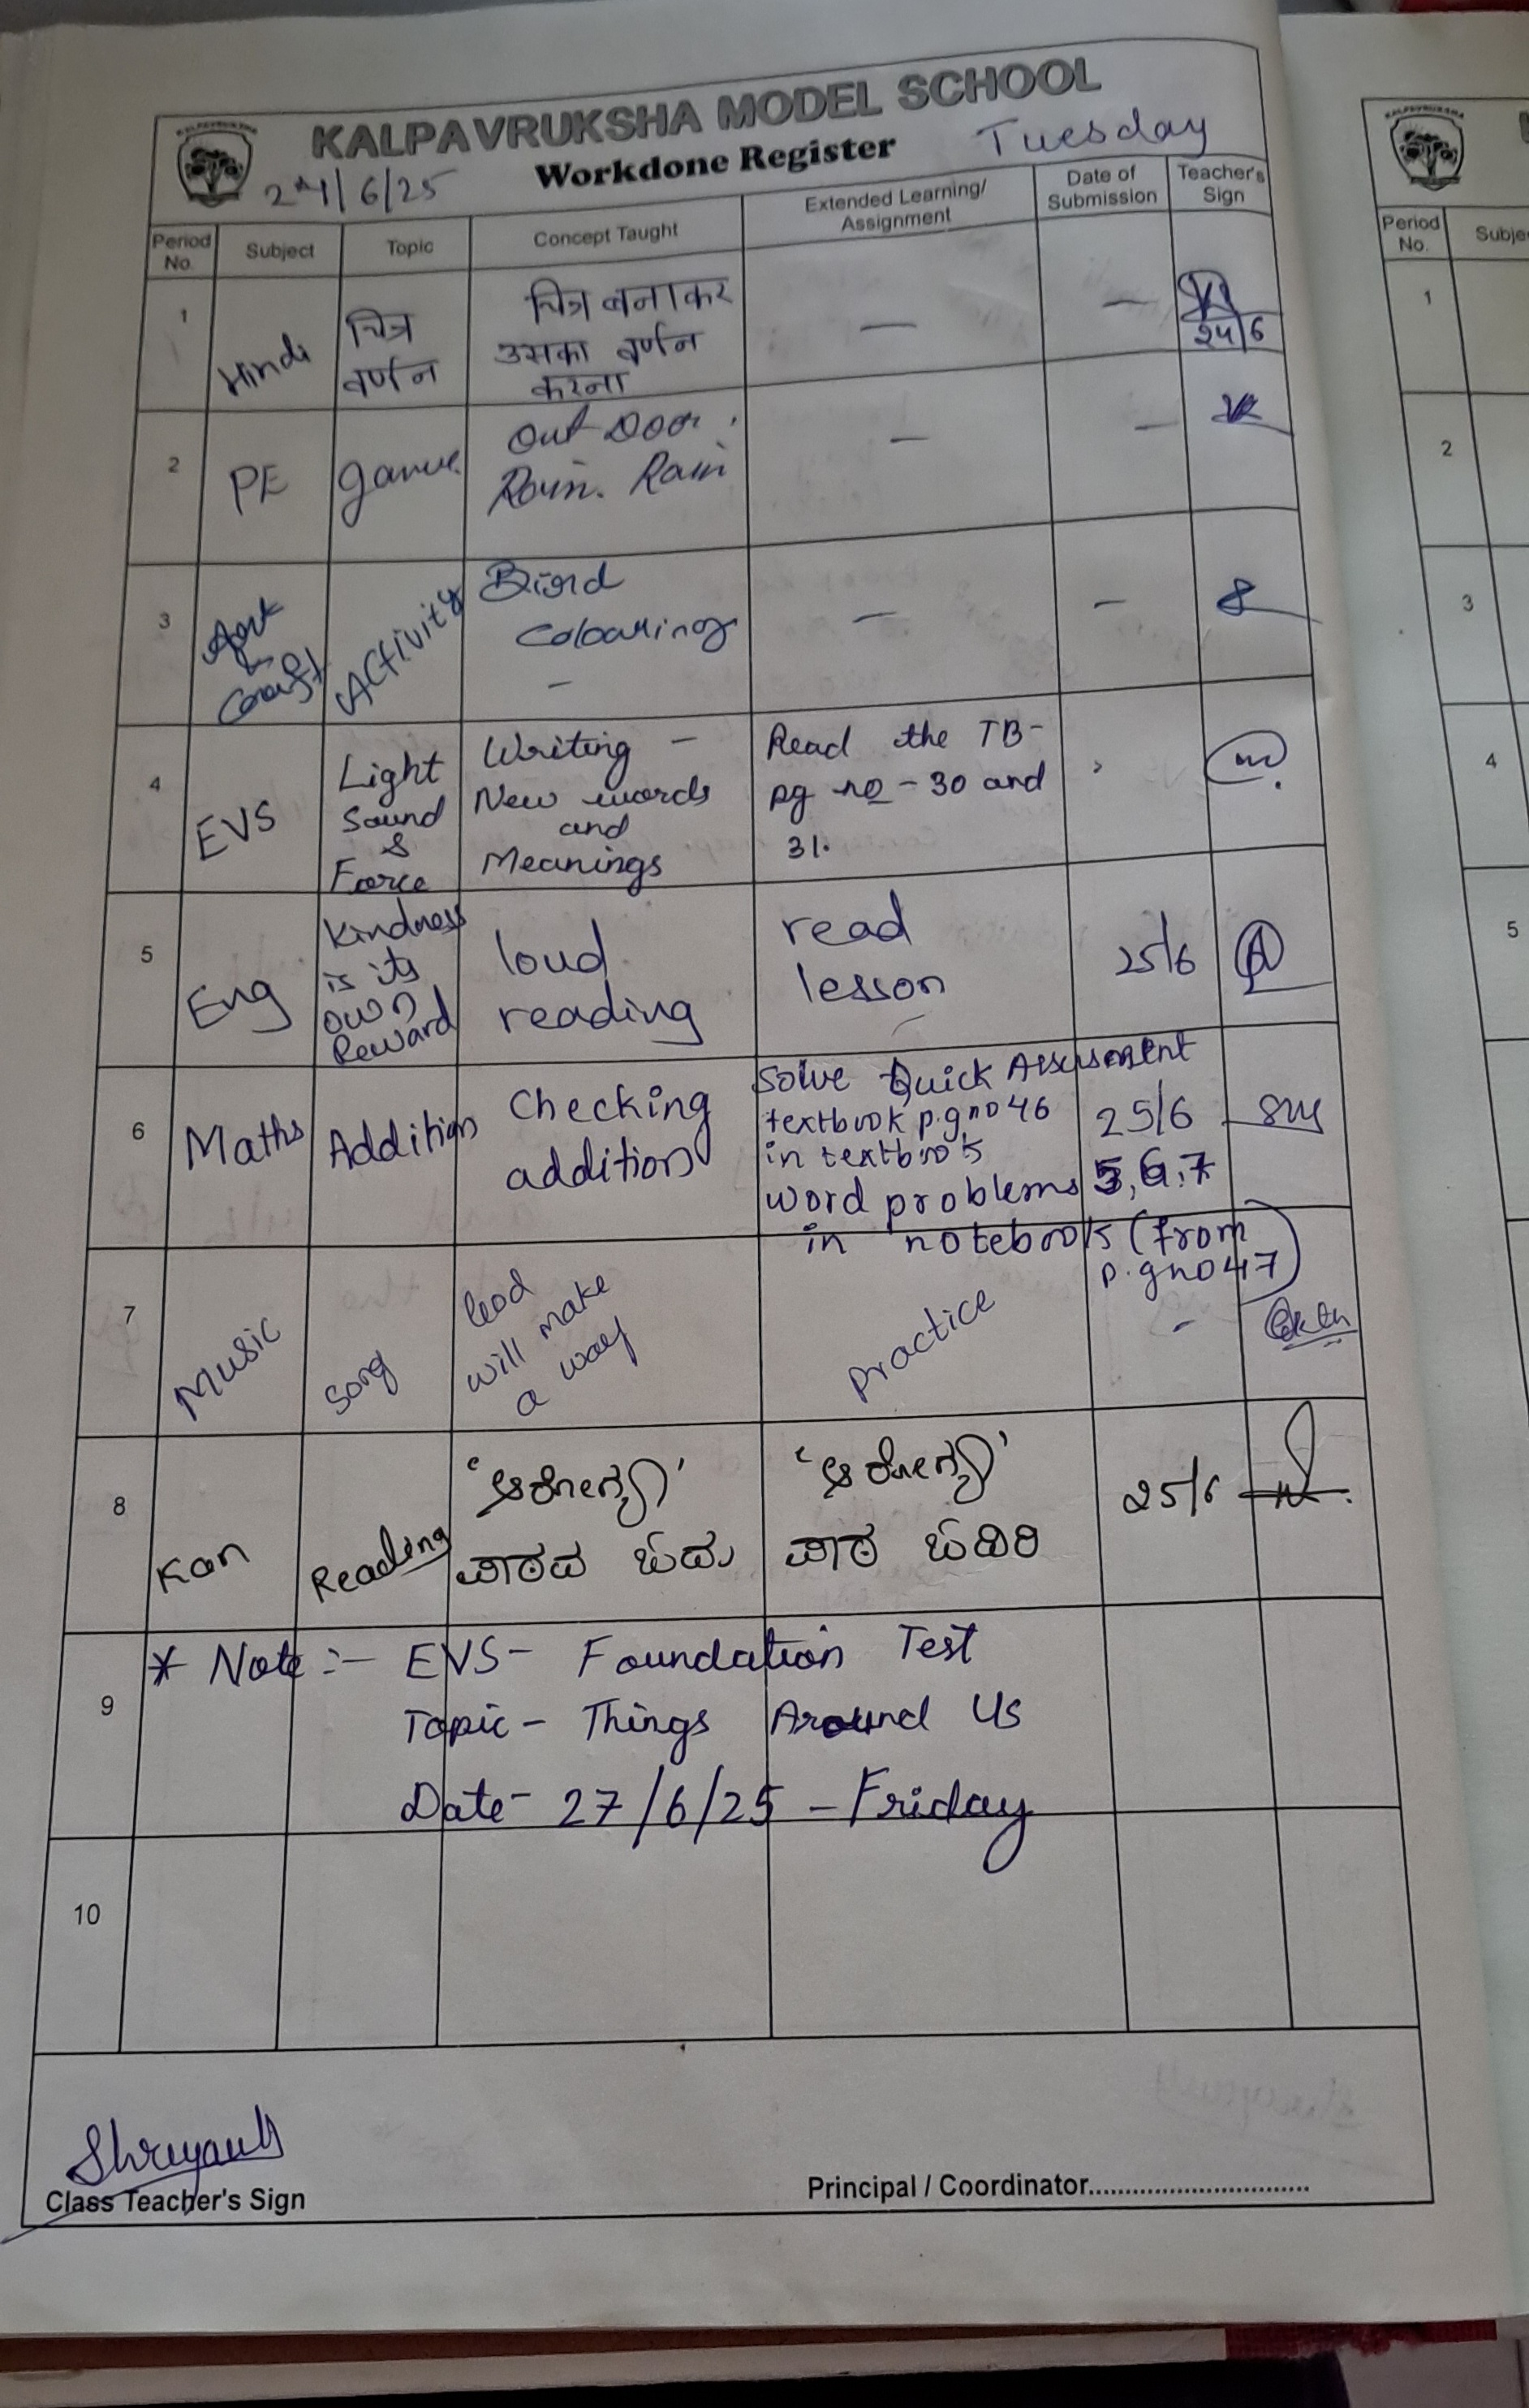 KALPAVRUKSHA MODEL SCHOOL
Workdone Register
Tuesday
24/6/25
Period No.
Subject
Topic
Concept Taught
Extended Learning/
Assignment
Date of
Submission
Teacher's
Sign
1
Hindi
चित्र
वर्णन
चित्र बनाकर
उसका वर्णन
करना
—
—
24/6
2
PE
game
Out Door
Rain. Rain
—
—
3
Art
&
Craft
Activity
Bird
Colouring
—
—
—
4
EVS
Light
Sound
&
Force
Writing –
New words
and
Meanings
Read the TB-
pg no - 30 and
31.
5
Eng
Kindness
is its
own
Reward
loud
reading
read
lesson
25/6
6
Maths
Addition
Checking
addition
Solve Quick Assessment
textbook p.g no 46
in textbooks
word problems 5,6,7
in notebooks (from
p.g no 47)
25/6
7
Music
Song
will make
a way
practice
-
8
Kan
Reading
'ಆರೋಗ್ಯ'
ಪಾಠದ ಓದು
'ಆರೋಗ್ಯ'
ಪಾಠ ಓದಿರಿ
25/6
9
* Note :- EVS- Foundation Test
Topic - Things Around Us
Date - 27/6/25 - Friday
10
Class Teacher's Sign
Principal / Coordinator..............................
Period
No.
Subje
1
2
3
4
5